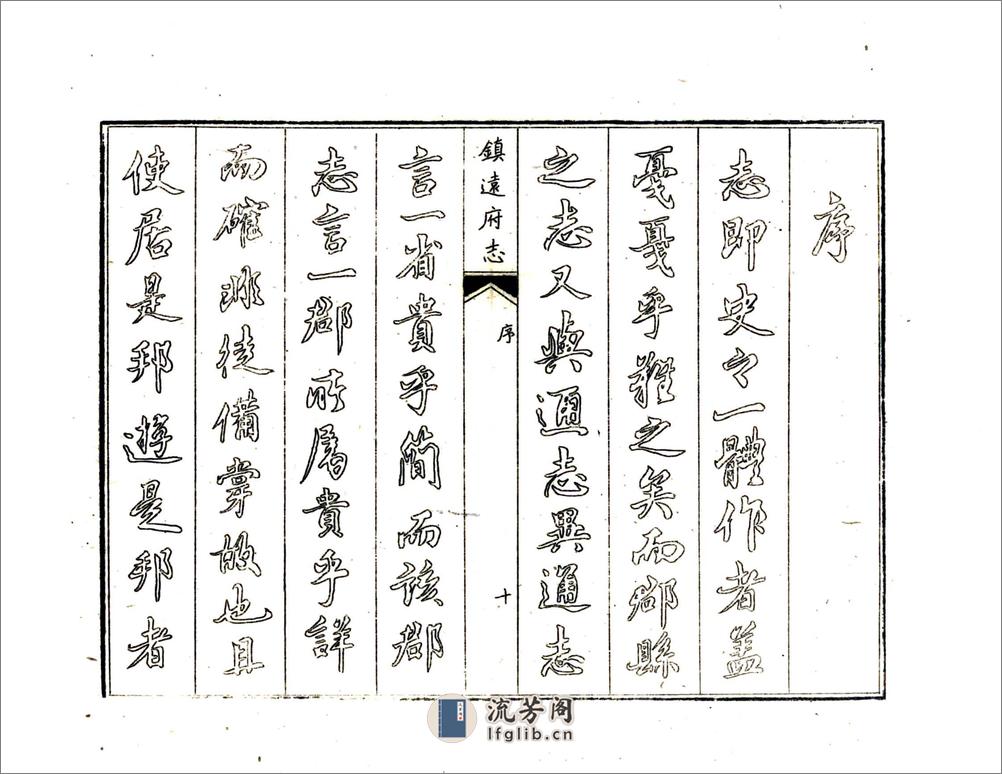 序
志即史之一體作者蓋
戞戞乎難之矣而郡縣
之志又與通志異通志
鎮遠府志
序
十
言一省貴乎簡而該郡
志言一郡所屬貴乎詳
而確非徒備掌故也且
使居是邦遊是邦者
流芳阁
lfglib.cn